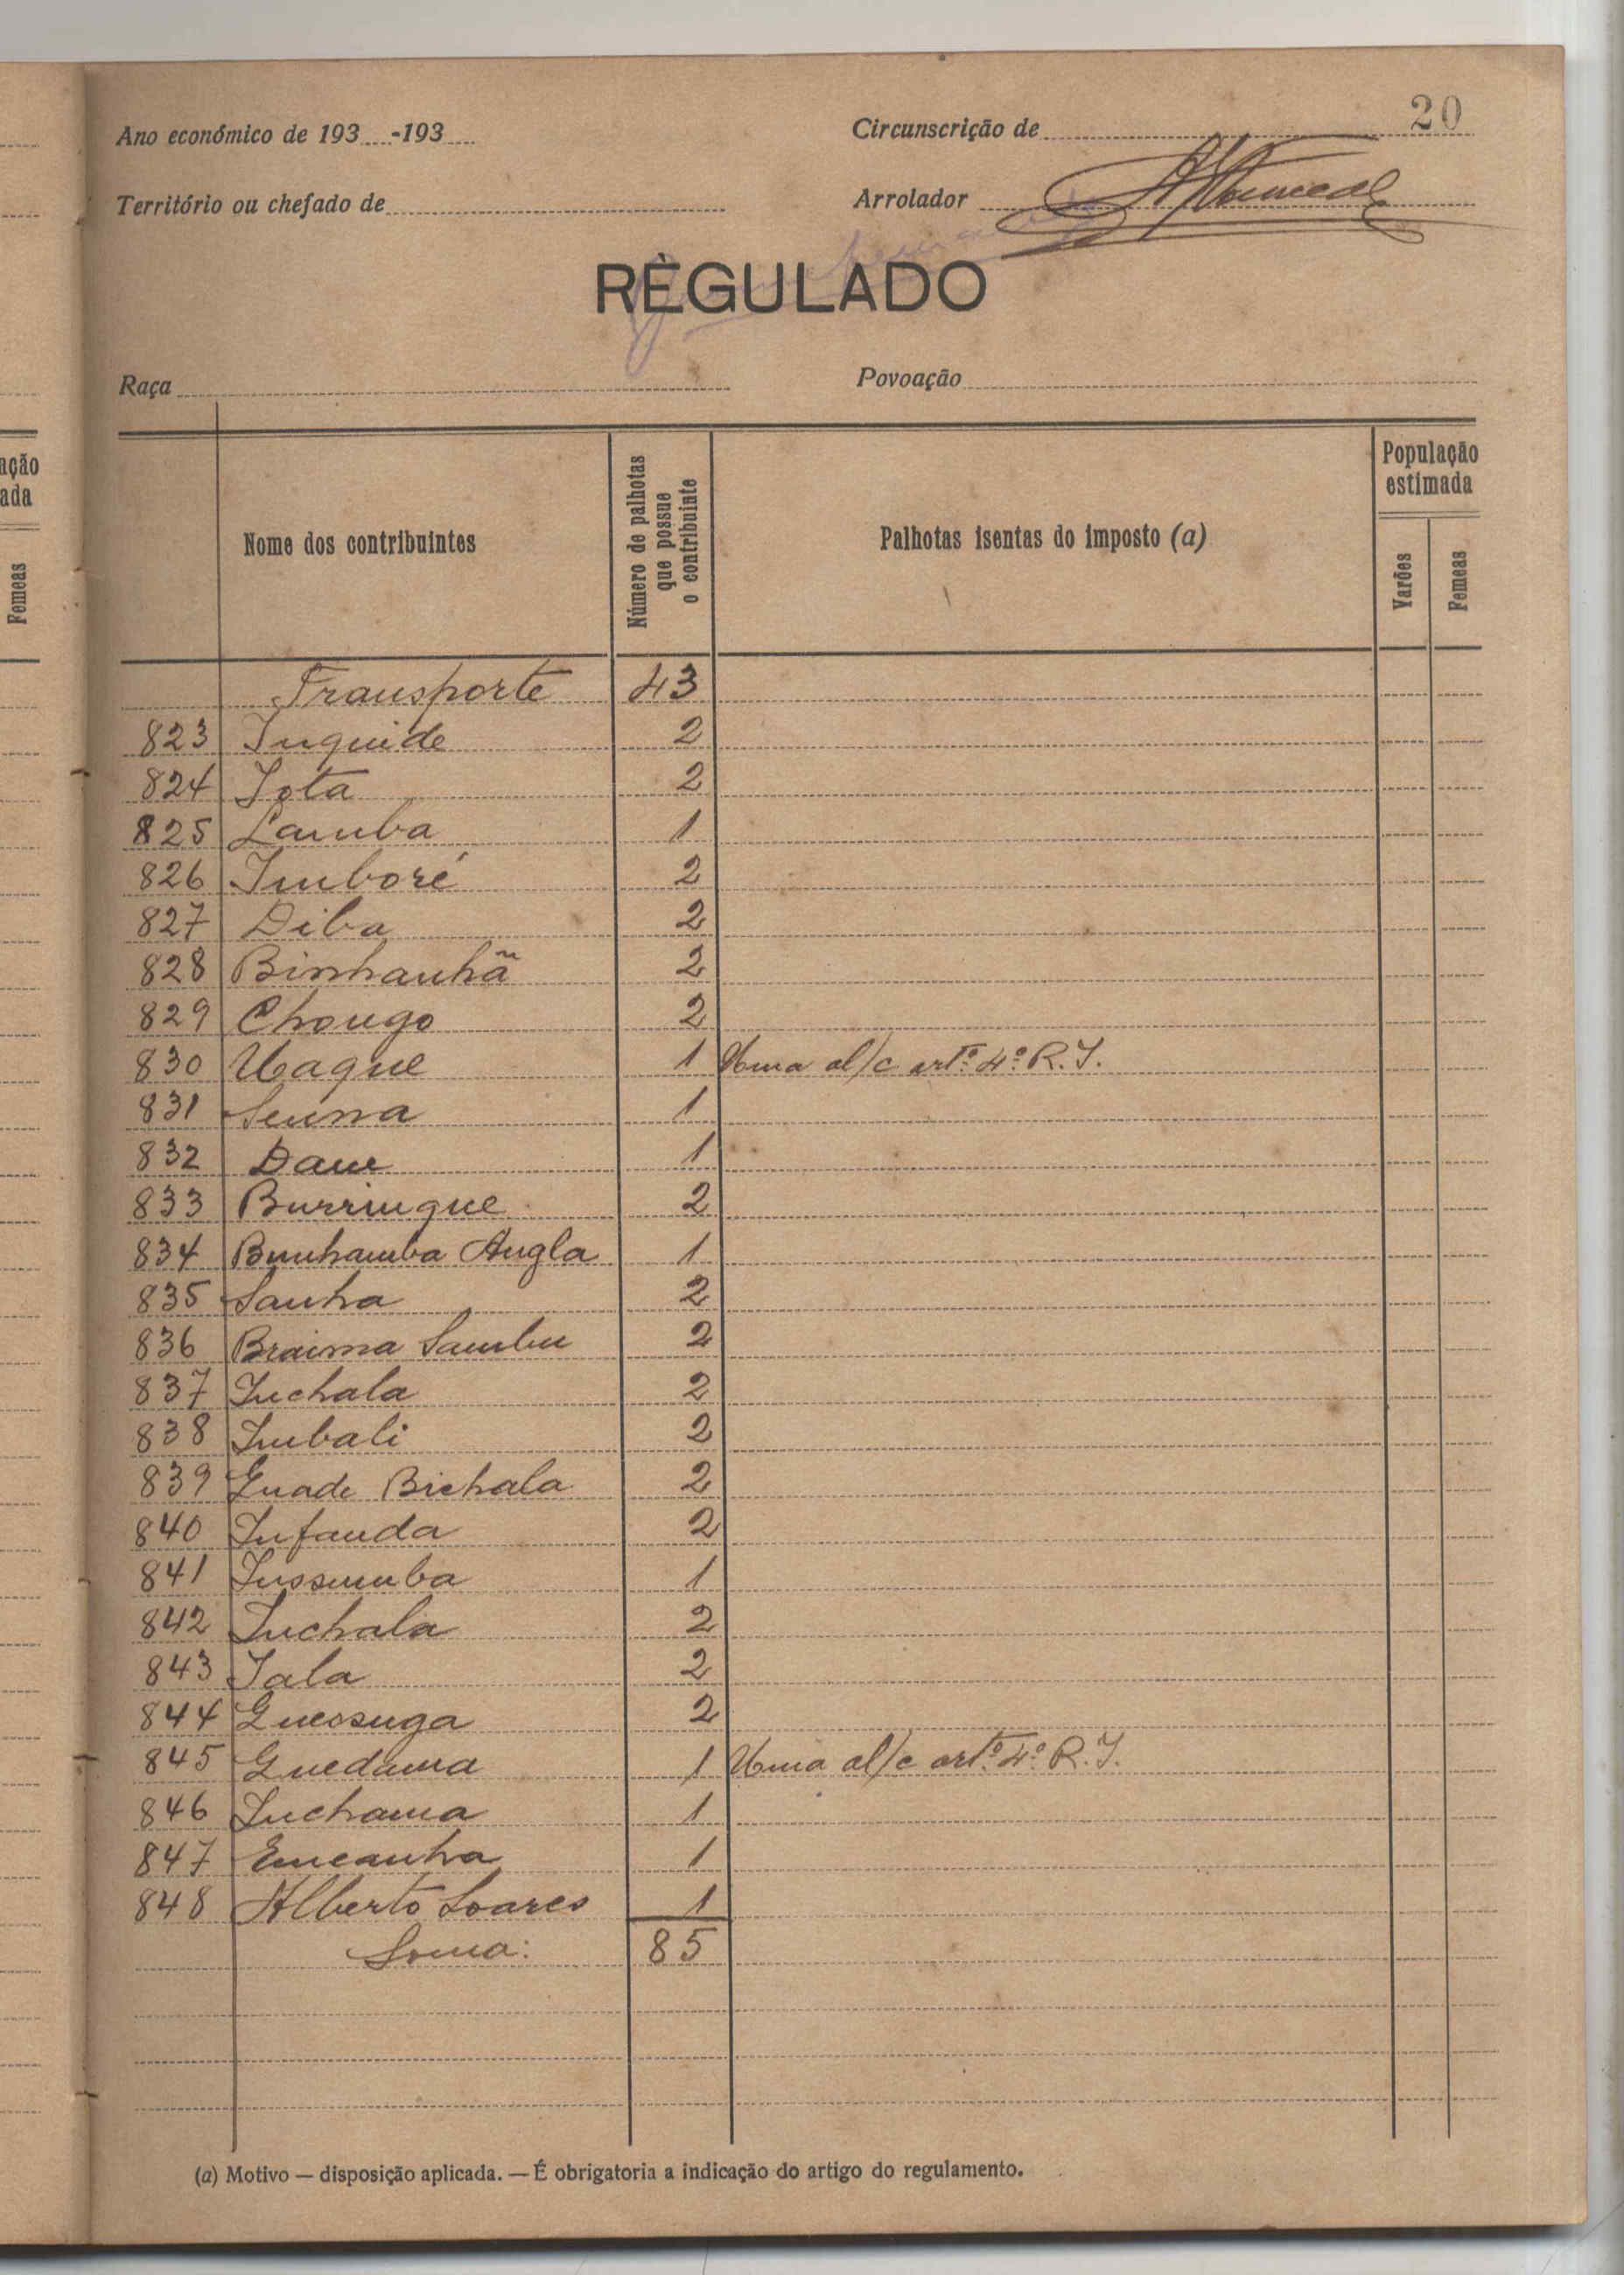 20
Ano económico de 193.....-193.....
Circunscrição de
Território ou chefado de
Arrolador
RÈGULADO
Raça
Povoação
ação
ada
Femeas
Nome dos contribuintes
Número de palhotas
que possue
o contribuinte
Palhotas isentas do imposto (a)
População
estimada
Varões
Femeas
Transporte 43
823 Inquide 2
824 Iota 2
825 Lamba 1
826 Imboré 2
827 Diba 2
828 Binhanhã 2
829 Chongo 2
830 Uaque 1 Uma al/c artº. 4º R.I.
831 1
832 1
833 Burringue 2
834 Bunhamba Angla 1
835 Sanha 2
836 Braima Sambu 2
837 Inchala 2
838 Imbali 2
839 Guade Bichala 2
840 Infanda 2
841 Inssumba 1
842 Inchala 2
843 Iala 2
844 Guessuga 2
845 Guedama 1 Uma al/c artº. 4º R.I.
846 Inchama 1
847 Emcanha 1
848 Alberto Soares 1
Soma: 85
(a) Motivo — disposição aplicada. — É obrigatoria a indicação do artigo do regulamento.